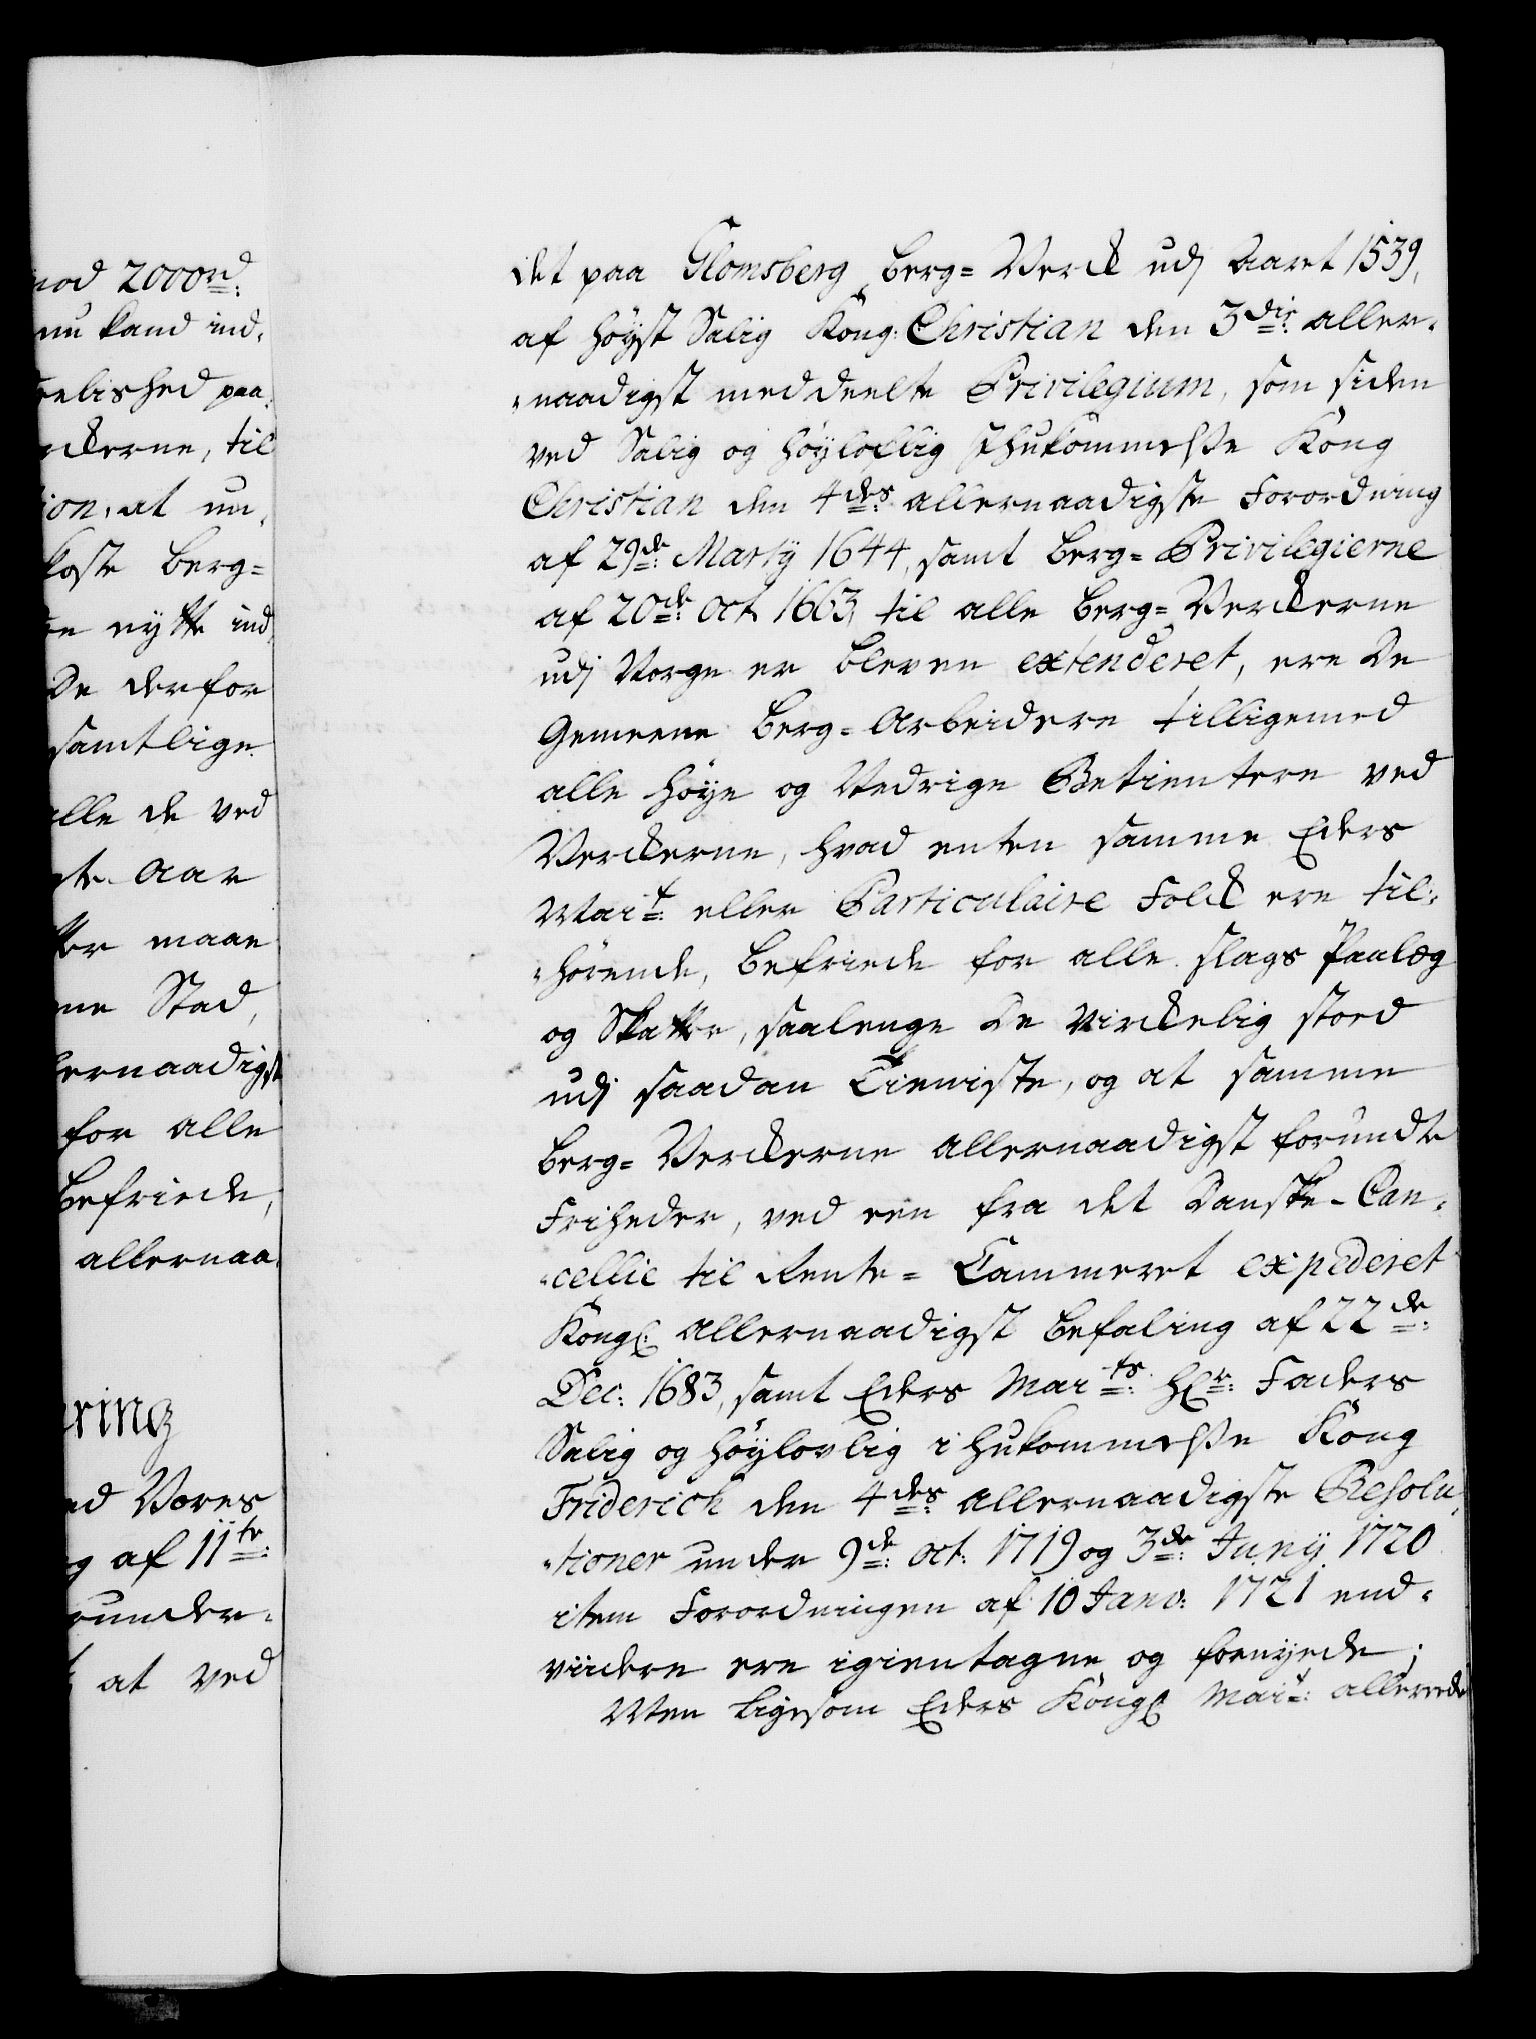 mod 2000rd:
nu kand ind¬
relished paa
rckerne, til
ion, at un¬
koste Berg=
re nytte ind
De derfor
samtlige
alle de ved
gte Aar
tter maae
ne Stad,
lernaadigst
for alle
befriede,
allernaa¬
æring
ed Vores
g af 11te:
runder¬
at ved
det paa Glomsberg Berg=Verck udj Aaret 1539,
af Høyst Salig Kong: Christian den 3die: aller¬
¬naadigst meddeelte Privilegium, som siden
ved Salig og Høylovlig Ihukommelse Kong
Christian den 4des: allernaadigste Forordning
af 29de: Martij 1644, samt Berg=Privilegierne
af 20de: Oct 1663, til alle Berg=Verckerne
udj Norge er bleven extenderet, ere De
Gemeene Berg=Arbeidere tilligemed
alle Høye og Nedrige Betientere ved
Verckerne, hvad enten samme Eders
Mait: eller Particulaire Folck ere til¬
¬hørende, befriede for alle slags Paalæg
og Skatter, saalenge De virckelig stoed
udj saadan Tieniste, og at samme
Berg=Verckerne allernaadigst forundte
Friheder, ved een fra det Danske-Can¬
¬cellie til Rente=Cammeret expederet
Kongl: allernaadigst Befaling af 22de:
Dec: 1683, samt Eders Maits: Hr: Faders
Salig og Høylovlig ihukommelse Kong
Friderich den 4des: allernaadigste Resolu¬
¬tioner under 9de: Oct: 1719 og 3de: Junij 1720
item Forordningen af 10 Janv: 1721 end¬
viidere ere igientagne og fornyede;
Men ligesom Eders Kongl Mait: allerede